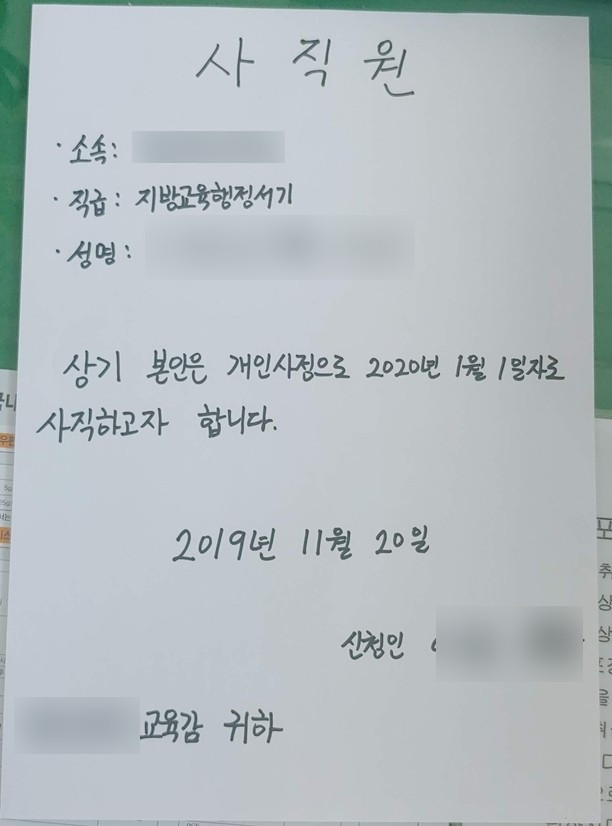 사 직 원
· 소속:
· 직급: 지방교육행정서기
· 성명:
상기 본인은 개인사정으로 2020년 1월 1일자로
사직하고자 합니다.
2019년 11월 20일
신청인
교육감 귀하